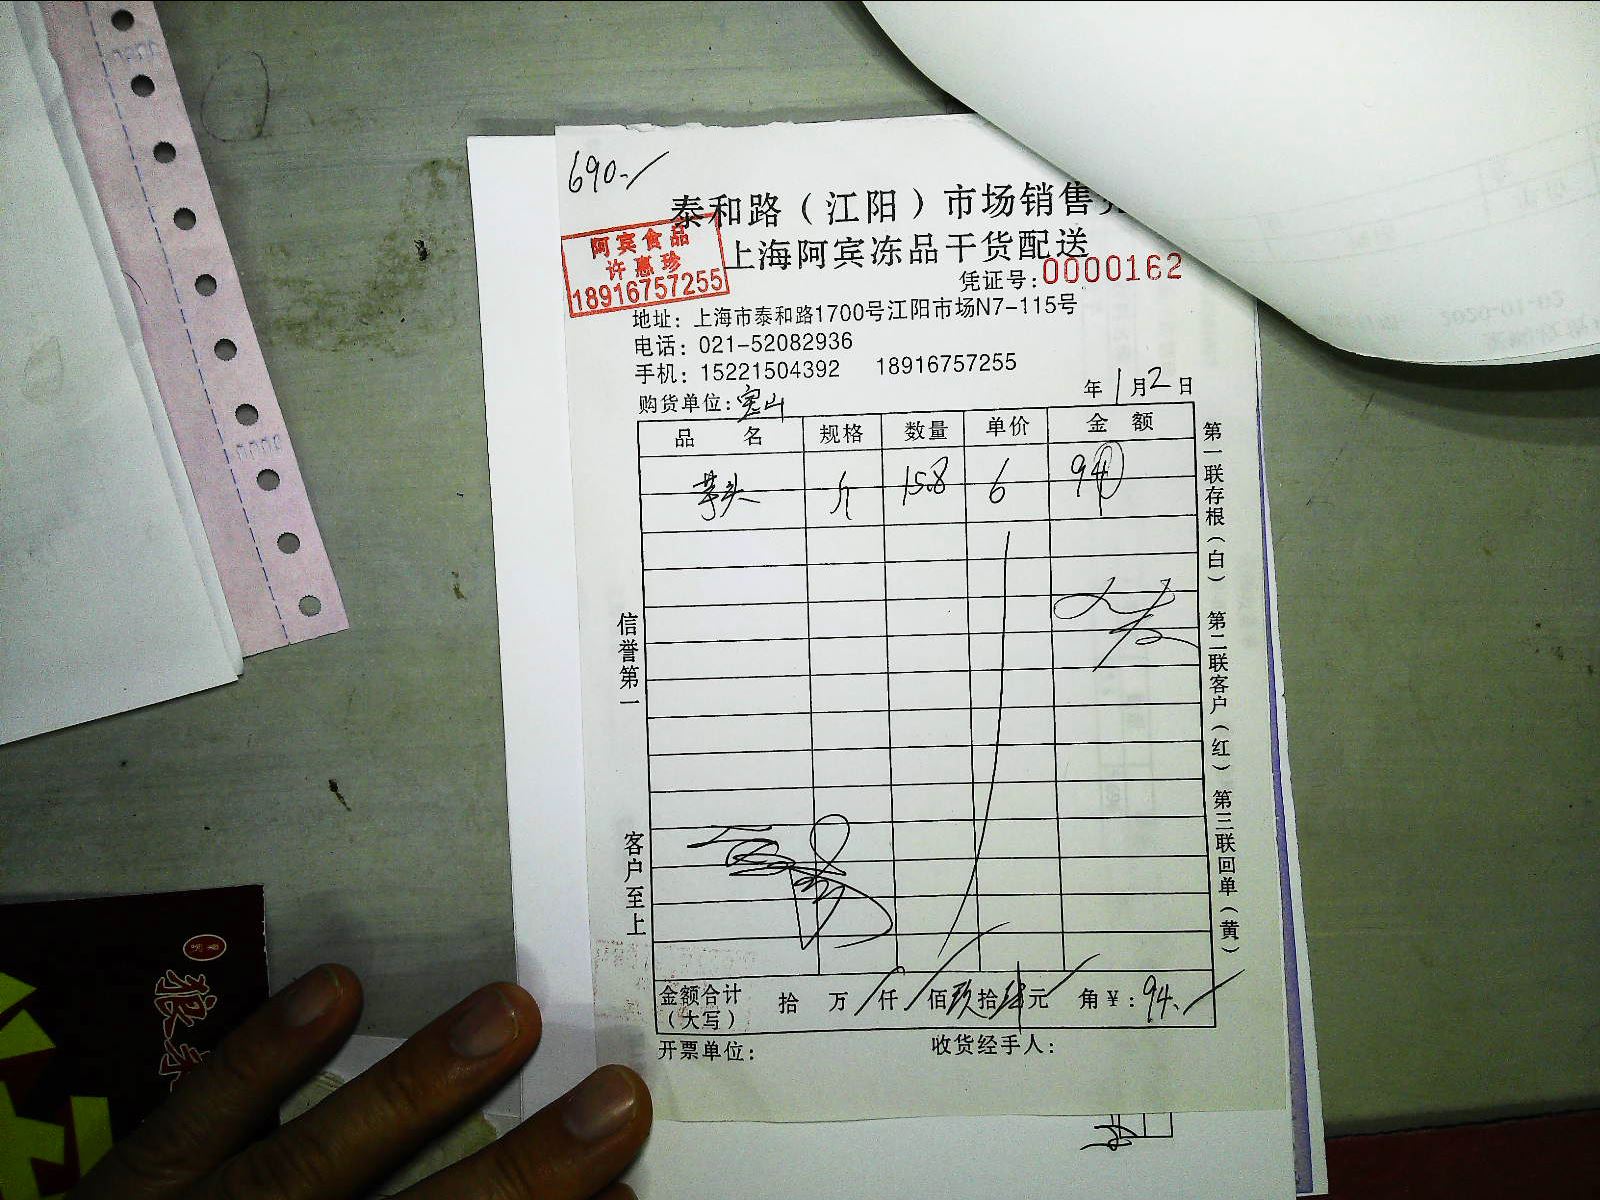 690.-
泰和路（江阳）市场销售
上海阿宾冻品干货配送
阿宾食品
许惠珍
18916757255
凭证号:0000162
地址：上海市泰和路1700号江阳市场N7-115号
电话：021-52082936
手机：15221504392 18916757255
购货单位：宝山 年1月2日
品 名 规格 数量 单价 金 额
芋头 斤 15.8 6 94
信誉第一
客户至上
第一联存根（白） 第二联客户（红） 第三联回单（黄）
金额合计（大写） 拾 万 仟 佰玖拾肆元 角￥：94.-
开票单位： 收货经手人：